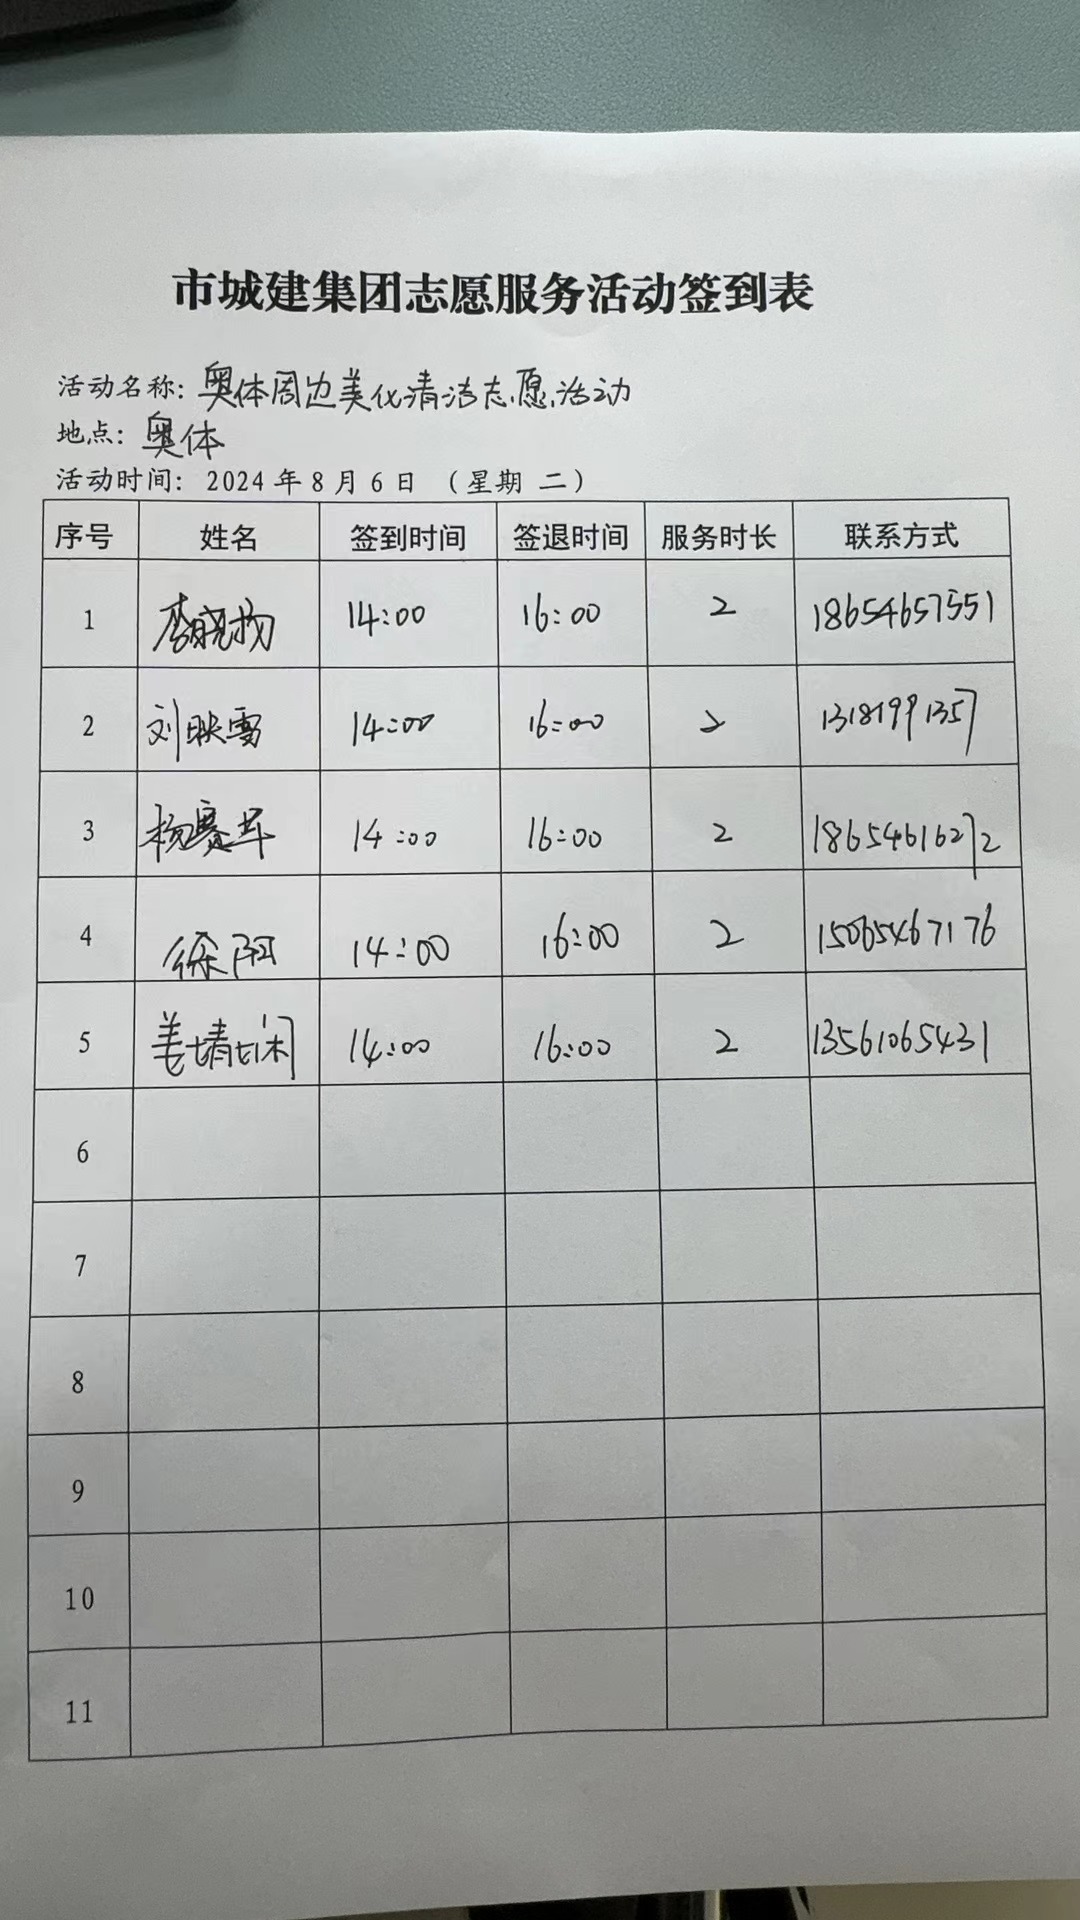 市城建集团志愿服务活动签到表
活动名称: 奥体周边美化清洁志愿活动
地点: 奥体
活动时间: 2024年8月6日 (星期 二)
序号 姓名 签到时间 签退时间 服务时长 联系方式
1 李晓扬 14:00 16:00 2 18654657551
2 刘映雪 14:00 16:00 2
3 杨赛华 14:00 16:00 2 18654616272
4 徐阳 14:00 16:00 2 15065467176
5 姜婧闲 14:00 16:00 2 13561065431
6
7
8
9
10
11